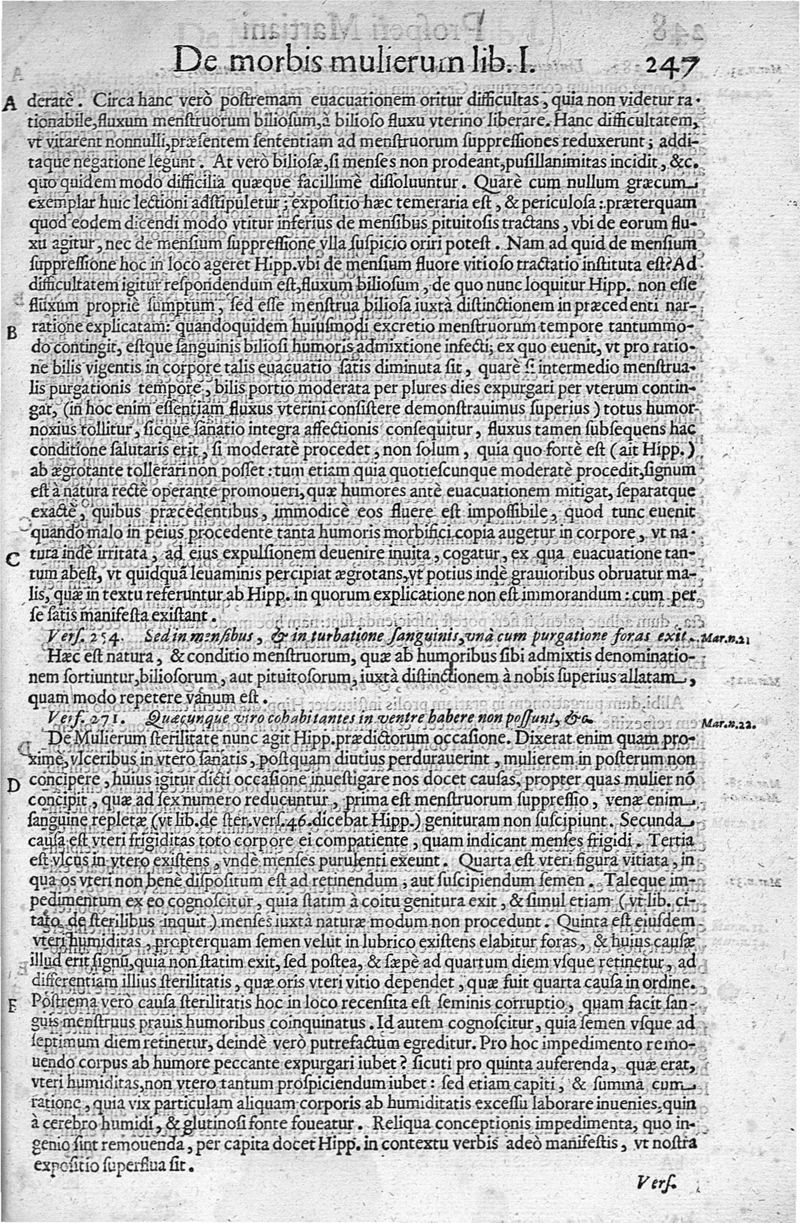 De morbis mulierum lib. I. 247
A deratè. Circa hanc verò postremam euacuationem oritur difficultas, quia non videtur ra-
tionabile, fluxum menstruorum biliosum, à bilioso fluxu vterino liberare. Hanc difficultatem,
vt vitarent nonnulli, præsentem sententiam ad menstruorum suppressiones reduxerunt; addi-
taque negatione legunt. At verò biliosæ, si menses non prodeant, pusillanimitas incidit, &c.
quo quidem modo difficilia quæque facillimè dissoluuntur. Quarè cum nullum græcum
exemplar huic lectioni adstipuletur; expositio hæc temeraria est, & periculosa: præterquam
quod eodem dicendi modo vtitur inferius de mensibus pituitosis tractans, vbi de eorum flu-
xu agitur, nec de mensium suppressione vlla suspicio oriri potest. Nam ad quid de mensium
suppressione hoc in loco ageret Hipp. vbi de mensium fluore vitioso tractatio instituta est? Ad
difficultatem igitur respondendum est, fluxum biliosum, de quo nunc loquitur Hipp. non esse
fluxum propriè sumptum, sed esse menstrua biliosa iuxtà distinctionem in præcedenti nar-
B ratione explicatam: quandoquidem huiusmodi excretio menstruorum tempore tantummo-
do contingit, estque sanguinis biliosi humoris admixtione infecti; ex quo euenit, vt pro ratio-
ne bilis vigentis in corpore talis euacuatio satis diminuta sit, quarè si intermedio menstrua-
lis purgationis tempore, bilis portio moderata per plures dies expurgari per vterum contin-
gat, (in hoc enim essentiam fluxus vterini consistere demonstrauimus superius) totus humor
noxius tollitur, sicque sanatio integra affectionis consequitur, fluxus tamen subsequens hac
conditione salutaris erit, si moderatè procedet, non solum, quia quo fortè est (ait Hipp.)
ab ægrotante tollerari non posset: tum etiam quia quotiescunque moderatè procedit, signum
est à natura rectè operante promoueri, quæ humores antè euacuationem mitigat, separatque
exactè, quibus præcedentibus, immodicè eos fluere est impossibile, quod tunc euenit
quando malo in peius procedente tanta humoris morbifici copia augetur in corpore, vt na-
C tura indè irritata, ad eius expulsionem deuenire inuita, cogatur, ex qua euacuatione tan-
tum abest, vt quidquã leuaminis percipiat ægrotans, vt potius indè grauioribus obruatur ma-
lis, quæ in textu referuntur ab Hipp. in quorum explicatione non est immorandum: cum per
se satis manifesta existant.
Vers. 254. Sed in mensibus, & in turbatione sanguinis, vnà cum purgatione foras exit. Mar.n.21
Hæc est natura, & conditio menstruorum, quæ ab humoribus sibi admixtis denominatio-
nem sortiuntur, biliosorum, aut pituitosorum, iuxtà distinctionem à nobis superius allatam,
quam modo repetere vanum est.
Vers. 271. Quæcunque viro cohabitantes in ventre habere non possunt, &c. Mar.n.22.
De Mulierum sterilitate nunc agit Hipp. prædictorum occasione. Dixerat enim quam pro-
ximè, vlceribus in vtero sanatis, postquam diutius perdurauerint, mulierem in posterum non
D concipere, huius igitur dicti occasione inuestigare nos docet causas, propter quas mulier nõ
concipit, quæ ad sex numero reducuntur, prima est menstruorum suppressio, venæ enim
sanguine repletæ (vt lib. de ster. vers. 46. dicebat Hipp.) genituram non suscipiunt. Secunda
causa est vteri frigiditas toto corpore ei compatiente, quam indicant menses frigidi. Tertia
est vlcus in vtero existens, vndè menses purulenti exeunt. Quarta est vteri figura vitiata, in
qua os vteri non benè dispositum est ad retinendum, aut suscipiendum semen. Taleque im-
pedimentum ex eo cognoscitur, quia statim à coitu genitura exit, & simul etiam (vt lib. ci-
tato de sterilibus inquit) menses iuxtà naturæ modum non procedunt. Quinta est eiusdem
vteri humiditas, propterquam semen velut in lubrico existens elabitur foras, & huius causæ
illud erit signũ, quia non statim exit, sed postea, & sæpè ad quartum diem vsque retinetur, ad
differentiam illius sterilitatis, quæ oris vteri vitio dependet, quæ fuit quarta causa in ordine.
E Postrema verò causa sterilitatis hoc in loco recensita est seminis corruptio, quam facit san-
guis menstruus prauis humoribus coinquinatus. Id autem cognoscitur, quia semen vsque ad
septimum diem retinetur, deindè verò putrefactum egreditur. Pro hoc impedimento remo-
uendo corpus ab humore peccante expurgari iubet? sicuti pro quinta auferenda, quæ erat,
vteri humiditas, non vtero tantum prospiciendum iubet: sed etiam capiti, & summa cum
ratione, quia vix particulam aliquam corporis ab humiditatis excessu laborare inuenies, quin
à cerebro humidi, & glutinosi fonte foueatur. Reliqua conceptionis impedimenta, quo in-
genio sint remouenda, per capita docet Hipp. in contextu verbis adeò manifestis, vt nostra
expositio superflua sit.
Vers.